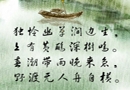 独怜幽草涧边生。
上有黄鹂深树鸣。
春潮带雨晚来急。
野渡无人舟自横。